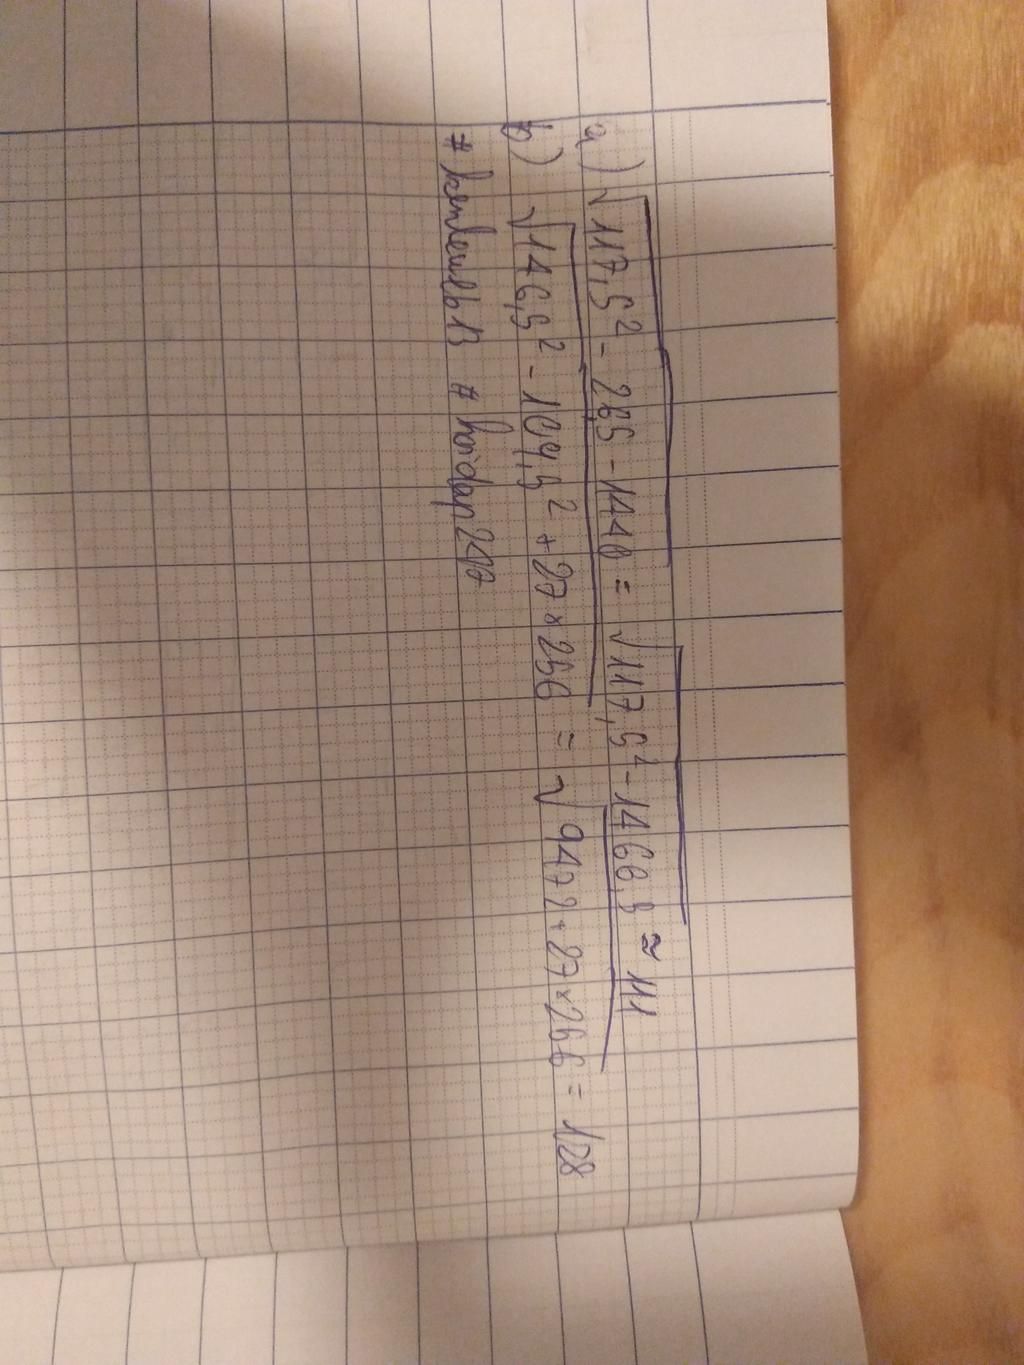 a) √117,5² - 26,5 - 1440 = √117,5² - 1466,5 ≈ 111
b) √146,5² - 109,5² + 27 × 256 = √9472 + 27 × 256 = 128
# hoidap247